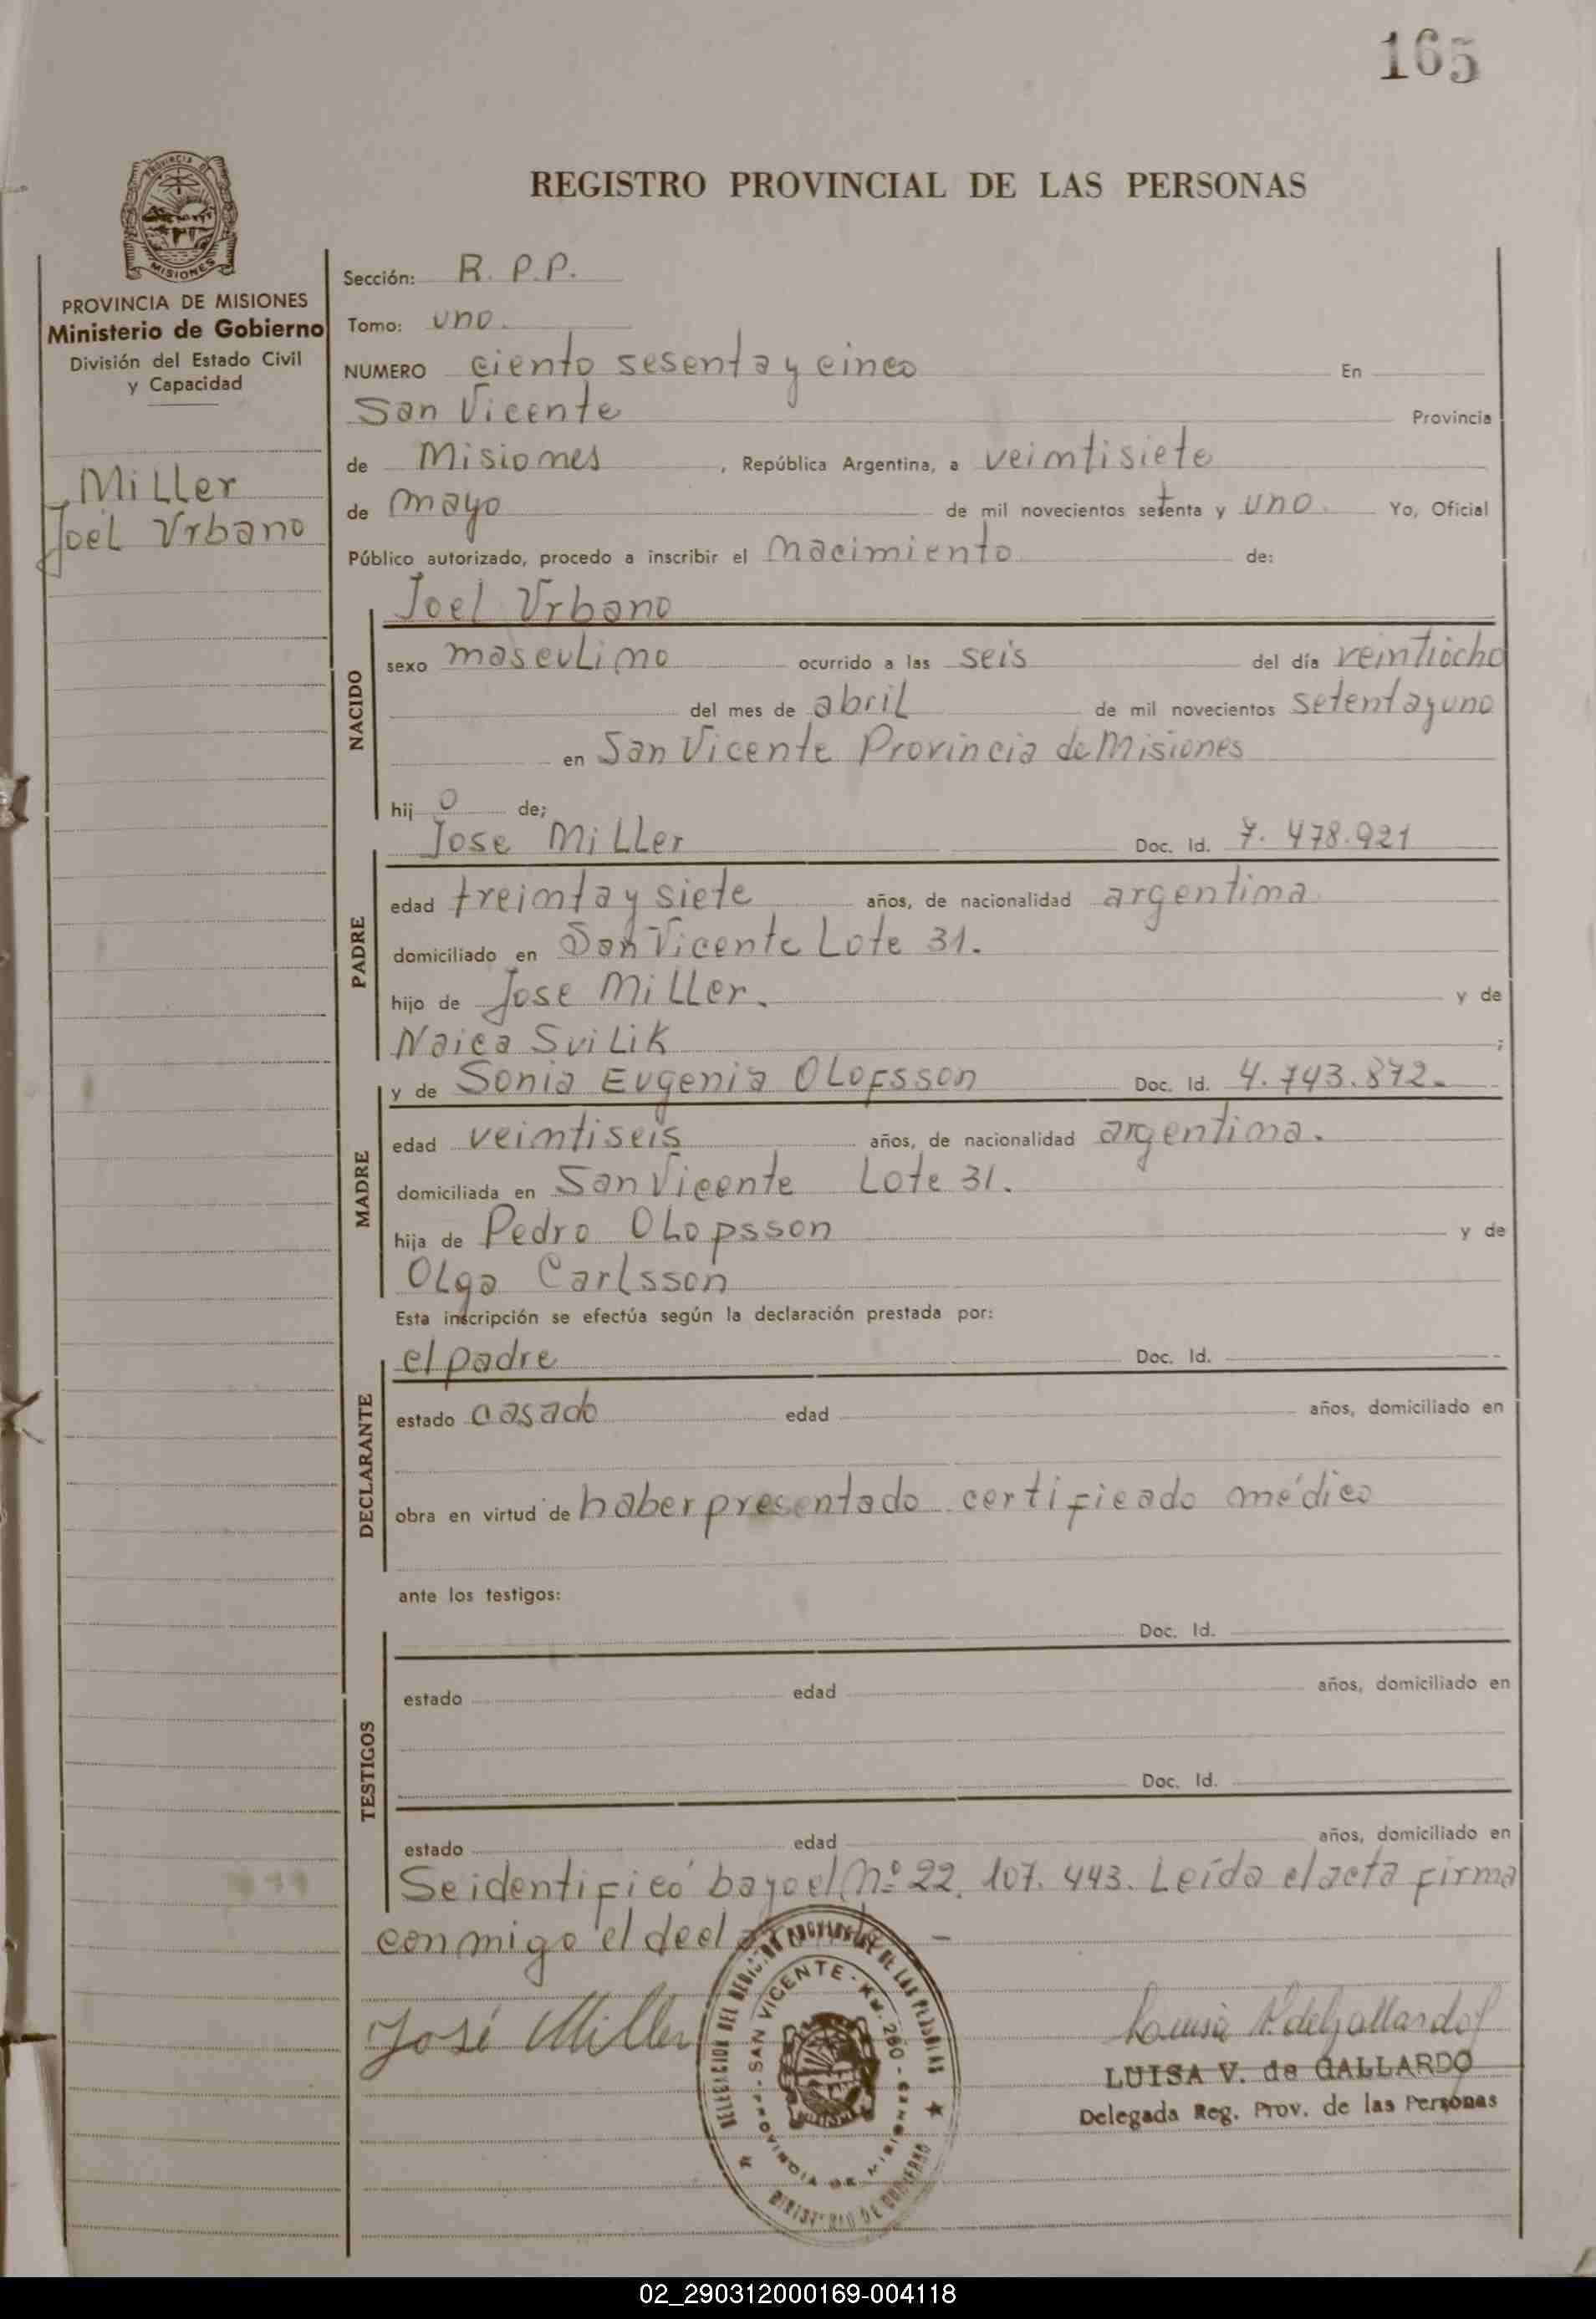 165
REGISTRO PROVINCIAL DE LAS PERSONAS
PROVINCIA DE MISIONES
Ministerio de Gobierno
División del Estado Civil
y Capacidad
Miller
Joel Urbano
Sección: R. P.P.
Tomo: uno.
NUMERO ciento sesenta y cinco En
San Vicente Provincia
de Misiones , República Argentina, a veintisiete
de mayo de mil novecientos setenta y uno. Yo, Oficial
Público autorizado, procedo a inscribir el nacimiento de:
Joel Urbano
NACIDO
sexo masculino ocurrido a las seis del día veintiocho
del mes de abril de mil novecientos setenta y uno
en San Vicente Provincia de Misiones
hij o de;
Jose Miller Doc. Id. 7. 478.921
PADRE
edad treinta y siete años, de nacionalidad argentina
domiciliado en San Vicente Lote 31.
hijo de Jose Miller. y de
Naica Svilik ;
y de Sonia Eugenia Olofsson Doc. Id. 4.743.872.
MADRE
edad veintiseis años, de nacionalidad argentina.
domiciliada en San Vicente Lote 31.
hija de Pedro Olopsson y de
Olga Carlsson
Esta inscripción se efectúa según la declaración prestada por:
el padre Doc. Id.
DECLARANTE
estado casado edad años, domiciliado en
obra en virtud de haber presentado certificado médico
ante los testigos:
Doc. Id.
TESTIGOS
estado edad años, domiciliado en
Doc. Id.
estado edad años, domiciliado en
Se identificó bajo el Nº 22. 107. 443. Leída el acta firma
conmigo el decl
José Miller
DELEGACION DEL REGISTRO PROVINCIAL DE LAS PERSONAS
SAN VICENTE - KM. 260 - PROVINCIA DE MISIONES
MINISTERIO DE GOBIERNO
Luisa V. de Gallardo
LUISA V. de GALLARDO
Delegada Reg. Prov. de las Personas
02_290312000169-004118